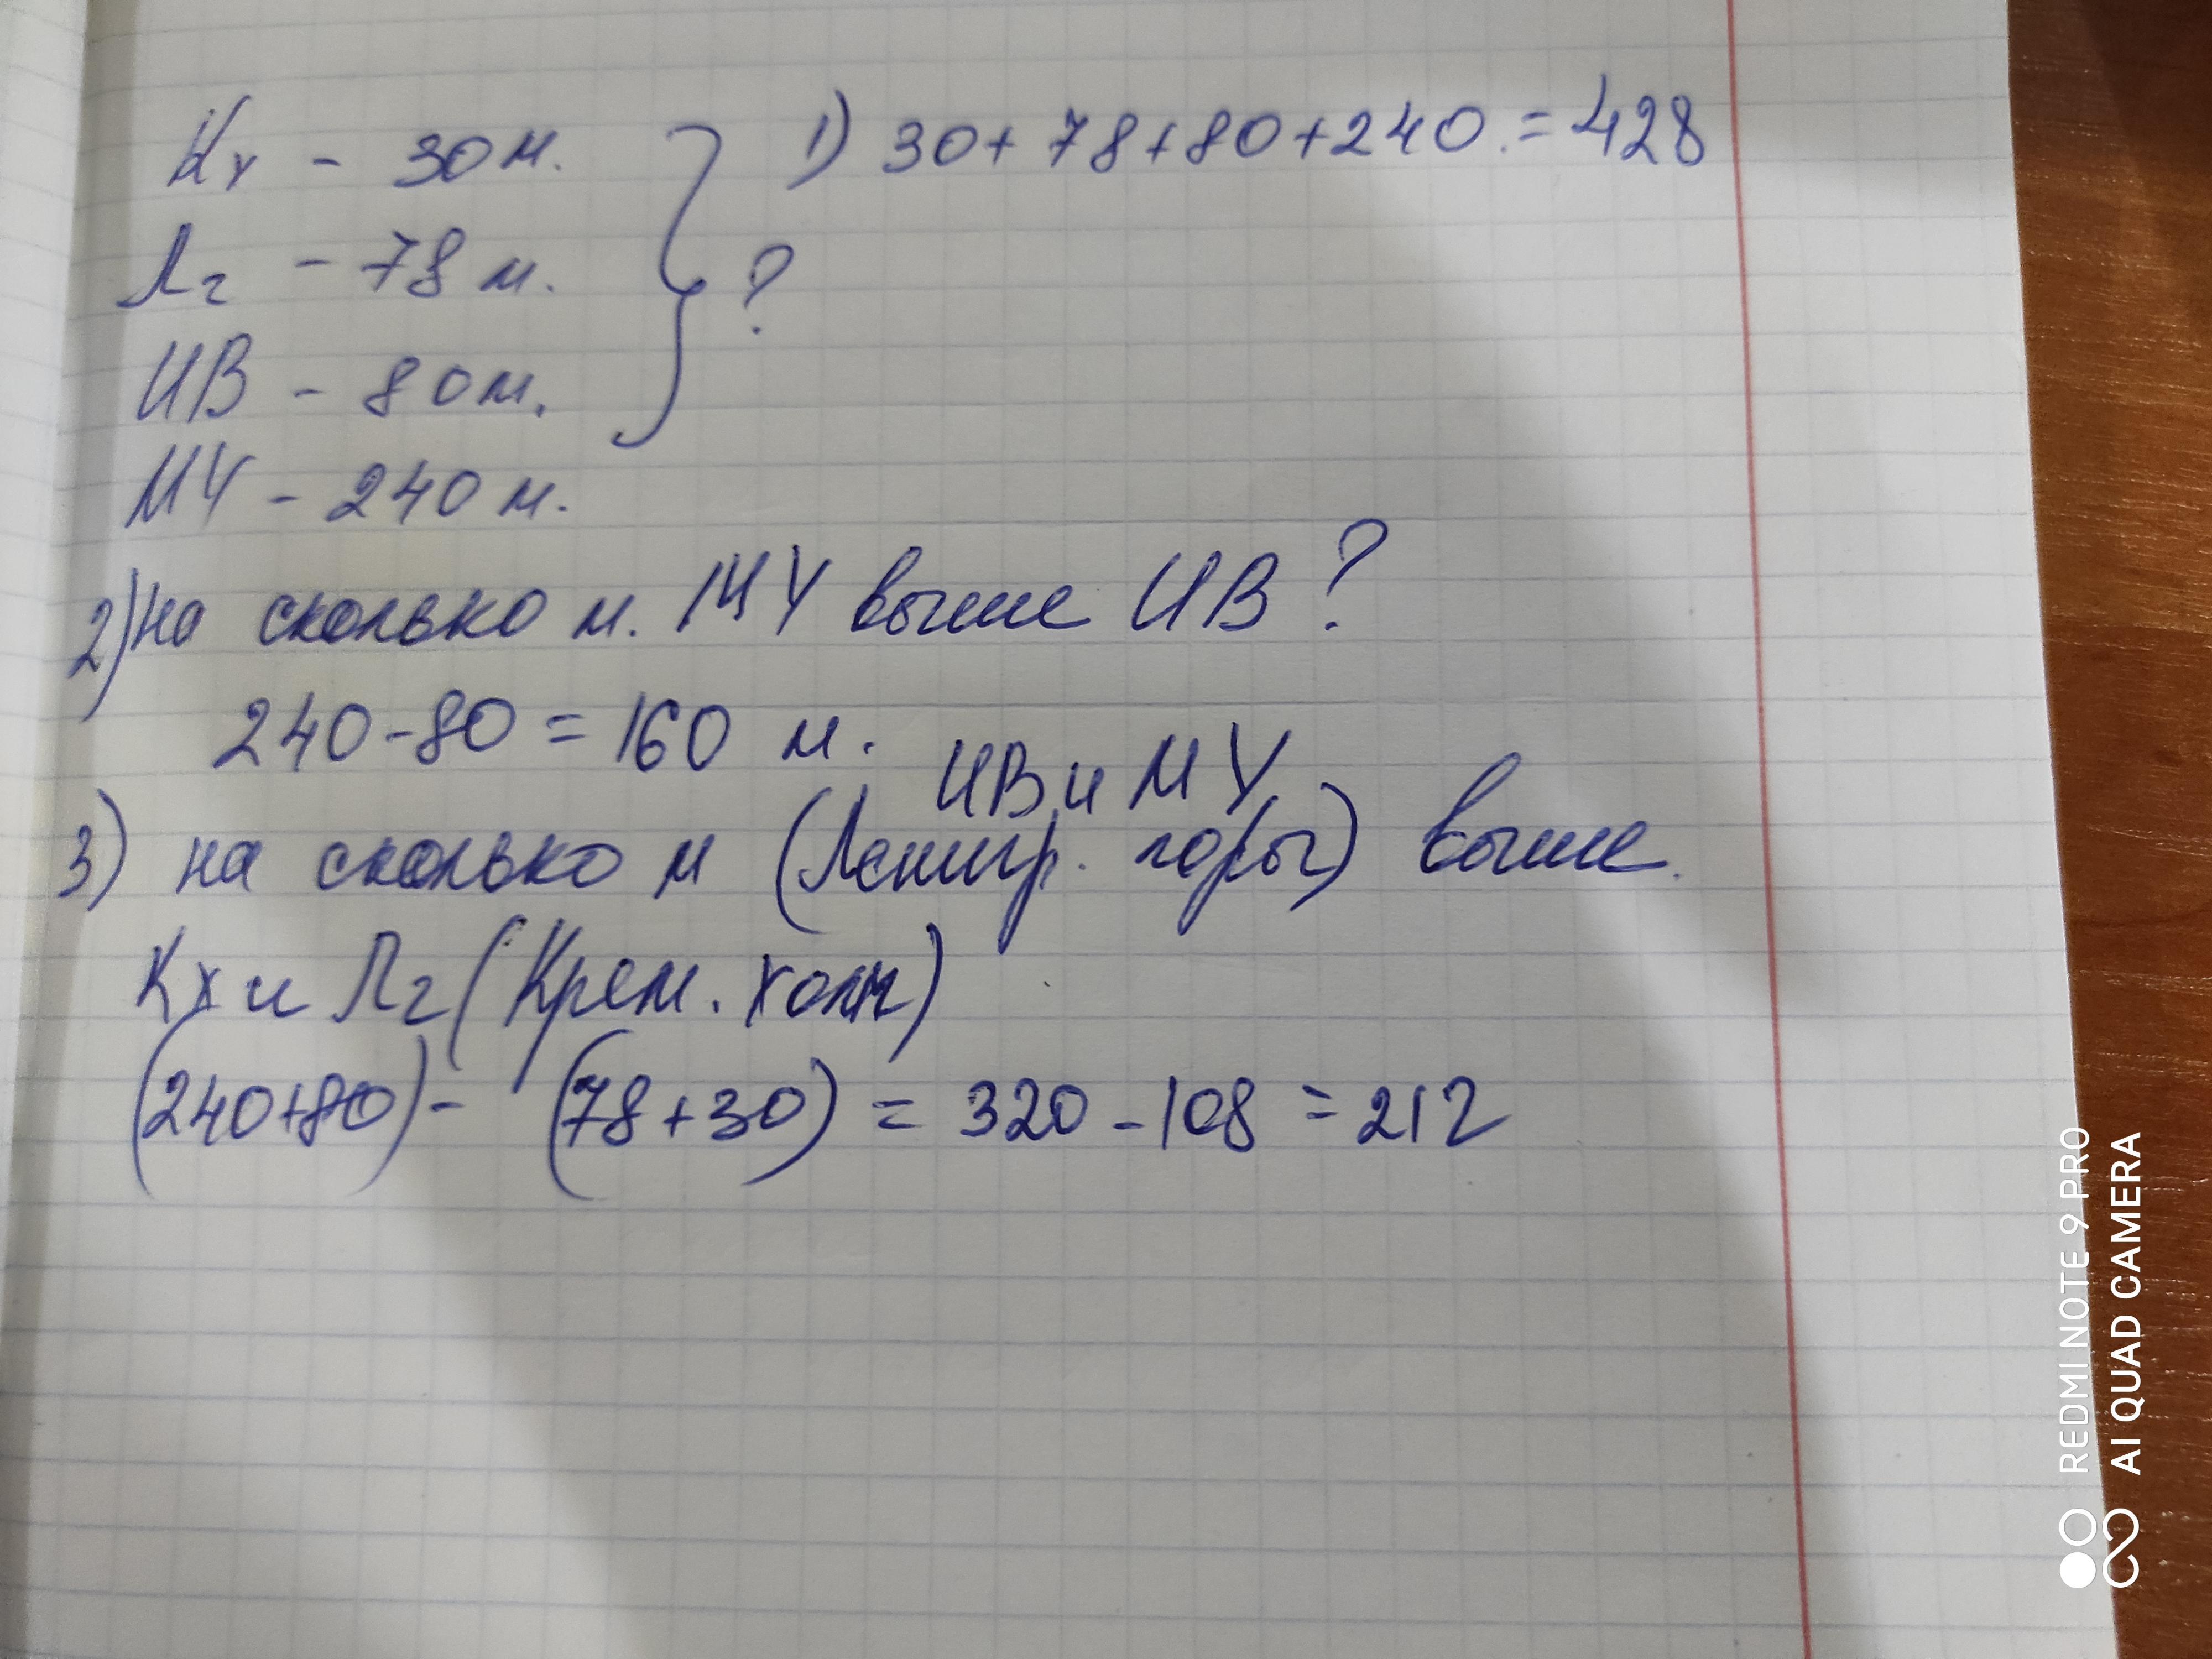 Кх - 30 м. 1) 30 + 78 + 80 + 240. = 428
Лг - 78 м. ?
ИВ - 80 м.
МУ - 240 м.
2) На сколько м. МУ выше ИВ?
240 - 80 = 160 м.
ИВ и МУ
3) на сколько м (Ленингр. горы) выше.
Кх и Лг (Крем. холм)
(240+80) - (78+30) = 320 - 108 = 212
REDMI NOTE 9 PRO
AI QUAD CAMERA